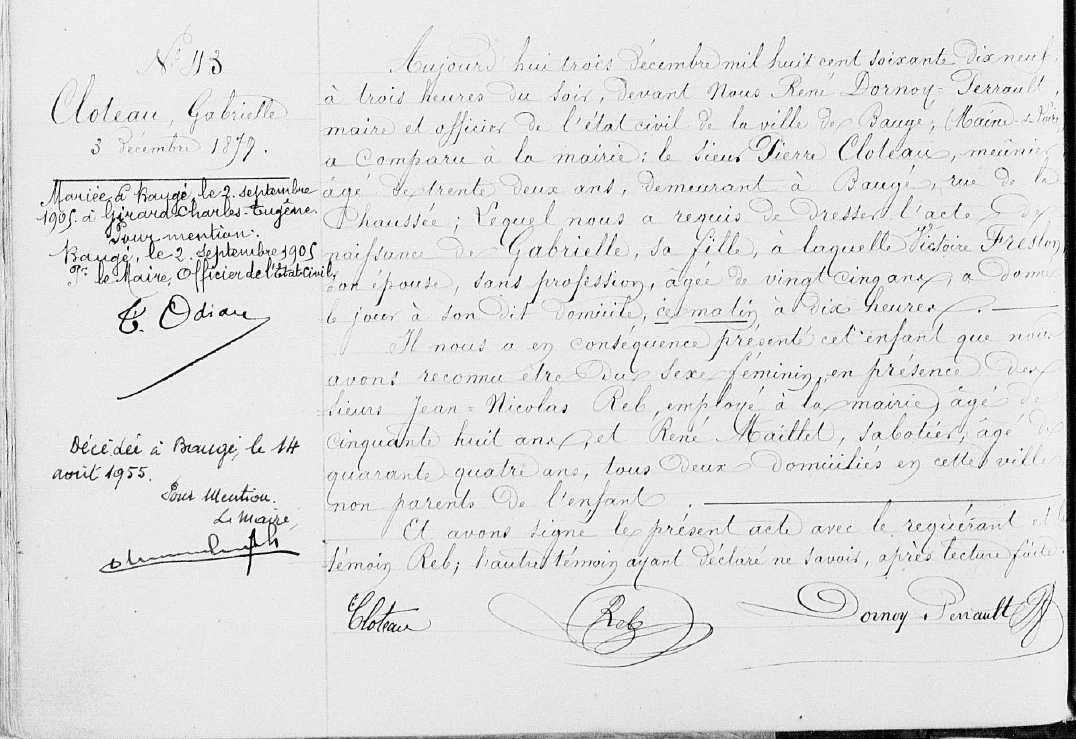 N° 113
Cloteau, Gabrielle
3 décembre 1879.
Mariée à Baugé, le 2 septembre
1905 à Girard Charles-Eugène.
Pour mention.
Baugé, le 2 septembre 1905
Pr. le Maire, Officier de l'état Civil,
Décédée à Baugé, le 14
août 1955.
Pour Mention.
Le Maire,
Aujourd'hui trois décembre mil huit cent soixante dix neuf,
à trois heures du soir, devant Nous René Dornoy-Perrault,
maire et officier de l'état civil de la ville de Baugé, (Maine-&-Loire,
a comparu à la mairie: le sieur Pierre Cloteau, meunier,
âgé de trente deux ans, demeurant à Baugé, rue de la
Chaussée; Lequel nous a requis de dresser l'acte de
naissance de Gabrielle, sa fille, à laquelle Victoire Freslon,
son épouse, sans profession, âgée de vingt cinq ans, a donné
le jour à son dit domicile, ce matin à dix heures.
Il nous a en conséquence présenté cet enfant que nous
avons reconnu être du sexe féminin, en présence des
sieurs Jean-Nicolas Reb, employé à la mairie, âgé de
cinquante huit ans, et René Maillet, sabotier, âgé de
quarante quatre ans, tous deux domiciliés en cette ville
non parents de l'enfant.
Et avons signé le présent acte avec le requérant et le
témoin Reb; l'autre témoin ayant déclaré ne savoir, après lecture faite.
Cloteau Reb Dornoy Perrault